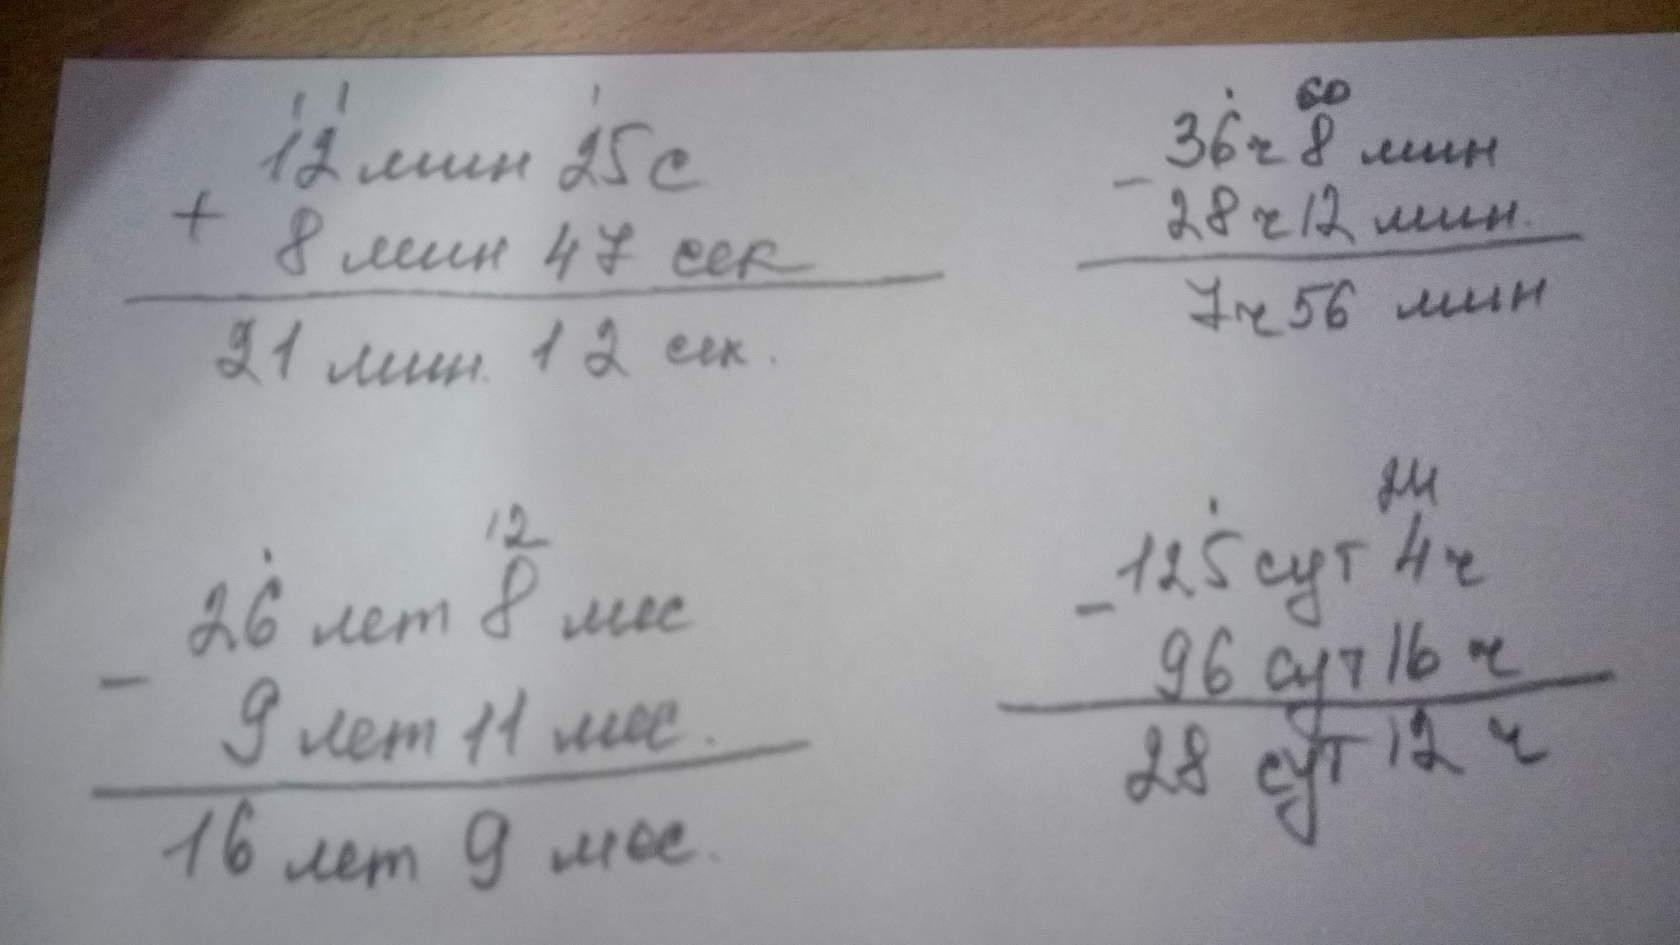 1 1 1
12 мин 25 с
+
8 мин 47 сек
21 мин. 12 сек.
60
36 ч 8 мин
-
28 ч 12 мин.
7 ч 56 мин
12
26 лет 8 мес
-
9 лет 11 мес.
16 лет 9 мес.
24
125 сут 4 ч
-
96 сут 16 ч
28 сут 12 ч